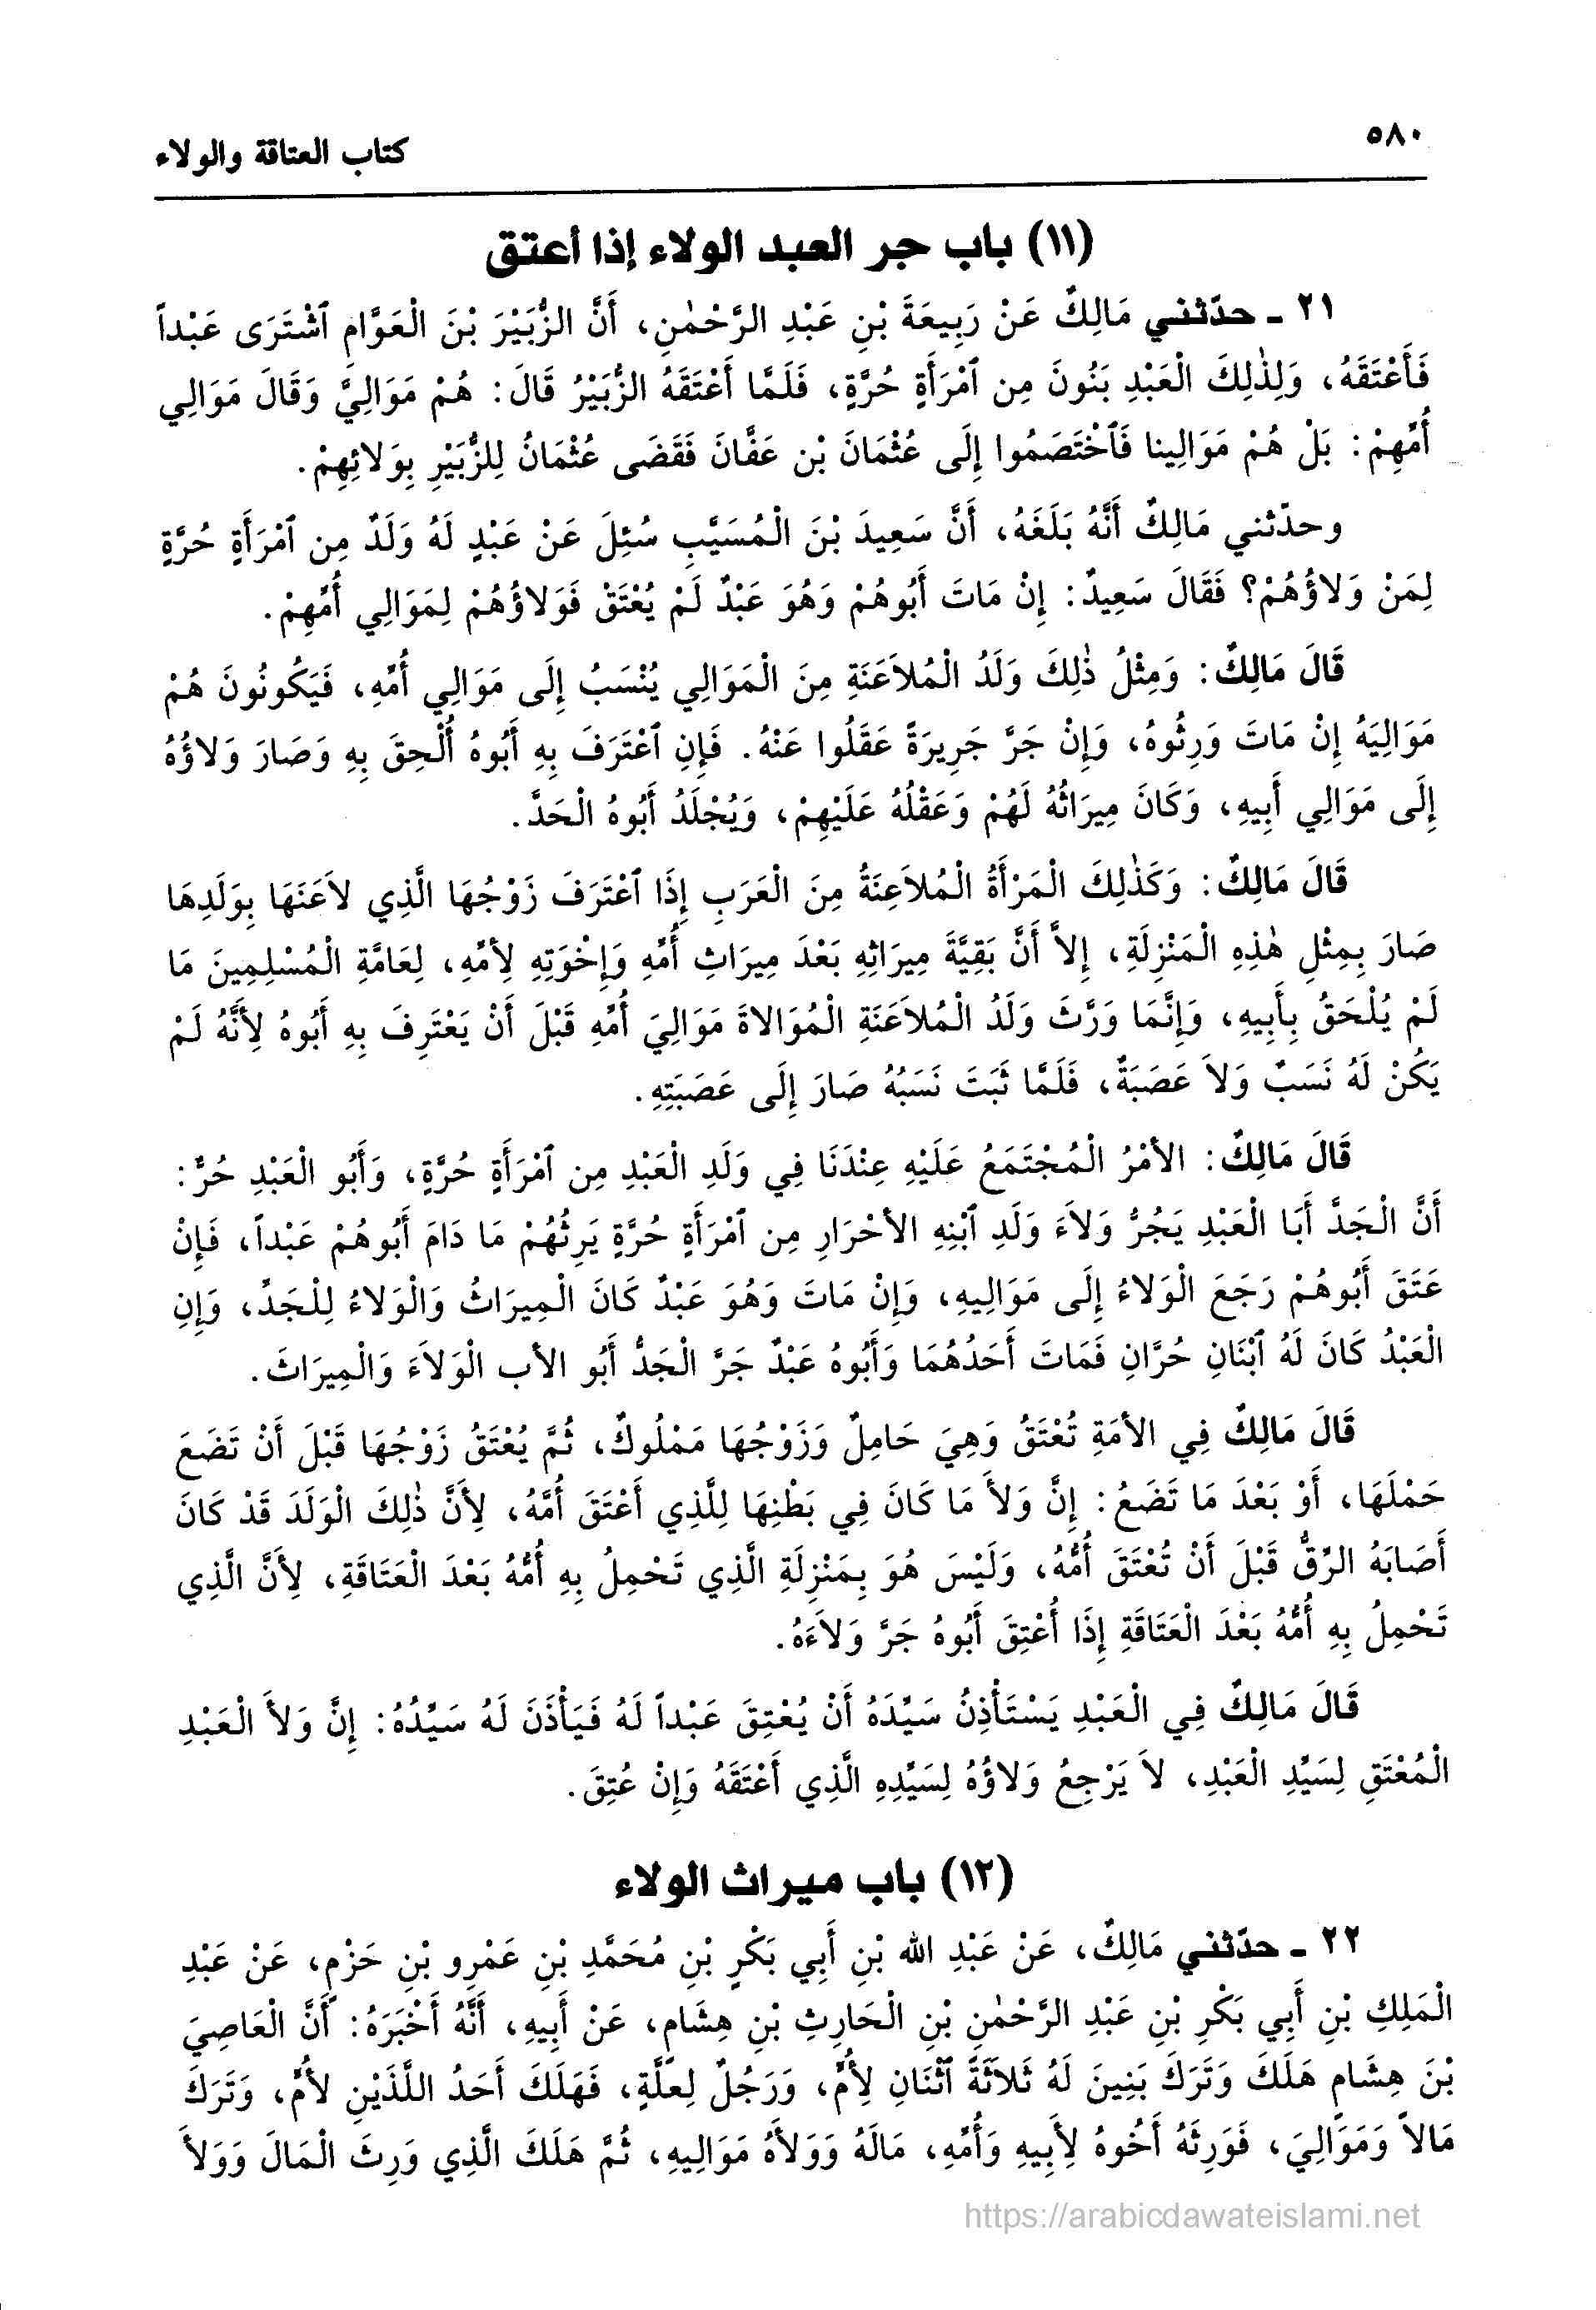 ٥٨٠
كتاب العتاقة والولاء
(١١) باب جر العبد الولاء إذا أعتق
٢١ ـ حدّثني مَالِكٌ عَنْ رَبِيعَةَ بْنِ عَبْدِ الرَّحْمٰنِ، أَنَّ الزُّبَيْرَ بْنَ الْعَوَّامِ ٱشْتَرَى عَبْداً
فَأَعْتَقَهُ، وَلِذٰلِكَ الْعَبْدِ بَنُونَ مِن ٱمْرَأَةٍ حُرَّةٍ، فَلَمَّا أَعْتَقَهُ الزُّبَيْرُ قَالَ: هُمْ مَوَالِيَّ وَقَالَ مَوَالِي
أُمِّهِمْ: بَلْ هُمْ مَوَالِينا فَٱخْتَصَمُوا إِلَى عُثْمَانَ بْن عَفَّانَ فَقَضَى عُثْمَانُ لِلزُّبَيْرِ بِوَلائِهِمْ.
وحدّثني مَالِكٌ أَنَّهُ بَلَغَهُ، أَنَّ سَعِيدَ بْنَ الْمُسَيَّبِ سُئِلَ عَنْ عَبْدٍ لَهُ وَلَدٌ مِن ٱمْرَأَةٍ حُرَّةٍ
لِمَنْ وَلاؤُهُمْ؟ فَقَالَ سَعِيدٌ: إِنْ مَاتَ أَبُوهُمْ وَهُوَ عَبْدٌ لَمْ يُعْتَقْ فَوَلاؤُهُمْ لِمَوَالِي أُمِّهِمْ.
قَالَ مَالِكٌ: وَمِثْلُ ذٰلِكَ وَلَدُ الْمُلاَعَنَةِ مِنَ الْمَوَالِي يُنْسَبُ إِلَى مَوَالِي أُمِّهِ، فَيَكُونُونَ هُمْ
مَوَالِيَهُ إِنْ مَاتَ وَرِثُوهُ، وَإِنْ جَرَّ جَرِيرَةً عَقَلُوا عَنْهُ. فَإِنِ ٱعْتَرَفَ بِهِ أَبُوهُ أُلْحِقَ بِهِ وَصَارَ وَلاؤُهُ
إِلَى مَوَالِي أَبِيهِ، وَكَانَ مِيرَاثُهُ لَهُمْ وَعَقْلُهُ عَلَيْهِمْ، وَيُجْلَدُ أَبُوهُ الْحَدَّ.
قَالَ مَالِكٌ: وَكَذٰلِكَ الْمَرْأَةُ الْمُلاَعِنَةُ مِنَ الْعَرَبِ إِذَا ٱعْتَرَفَ زَوْجُهَا الَّذِي لاَعَنَهَا بِوَلَدِهَا
صَارَ بِمِثْلِ هٰذِهِ الْمَنْزِلَةِ، إِلاَّ أَنَّ بَقِيَّةَ مِيرَاثِهِ بَعْدَ مِيرَاثِ أُمِّهِ وَإِخْوَتِهِ لِأمِّهِ، لِعَامَّةِ الْمُسْلِمِينَ مَا
لَمْ يُلْحَقُ بِأَبِيهِ، وَإِنَّمَا وَرَّثَ وَلَدُ الْمُلاَعَنَةِ الْمُوَالاةَ مَوَالِيَ أُمِّهِ قَبْلَ أَنْ يَعْتَرِفَ بِهِ أَبُوهُ لِأَنَّهُ لَمْ
يَكُنْ لَهُ نَسَبٌ وَلاَ عَصَبَةٌ، فَلَمَّا ثَبَتَ نَسَبُهُ صَارَ إِلَى عَصَبَتِهِ.
قَالَ مَالِكٌ: الأمْرُ الْمُجْتَمَعُ عَلَيْهِ عِنْدَنَا فِي وَلَدِ الْعَبْدِ مِن ٱمْرَأَةٍ حُرَّةٍ، وَأَبُو الْعَبْدِ حُرٌّ:
أَنَّ الْجَدَّ أَبَا الْعَبْدِ يَجُرُّ وَلاَءَ وَلَدِ ٱبْنِهِ الأحْرَارِ مِن ٱمْرَأَةٍ حُرَّةٍ يَرِثُهُمْ مَا دَامَ أَبُوهُمْ عَبْداً، فَإِنْ
عَتَقَ أَبُوهُمْ رَجَعَ الْوَلاءُ إِلَى مَوَالِيهِ، وَإِنْ مَاتَ وَهُوَ عَبْدٌ كَانَ الْمِيرَاثُ وَالْوَلاءُ لِلْجَدِّ، وَإِنِ
الْعَبْدُ كَانَ لَهُ ٱبْنَانِ حُرَّانِ فَمَاتَ أَحَدُهُمَا وَأَبُوهُ عَبْدٌ جَرَّ الْجَدُّ أَبُو الأب الْوَلاَءَ وَالْمِيرَاثَ.
قَالَ مَالِكٌ فِي الأمَةِ تُعْتَقُ وَهِيَ حَامِلٌ وَزَوْجُهَا مَمْلُوكٌ، ثُمَّ يُعْتَقُ زَوْجُهَا قَبْلَ أَنْ تَضَعَ
حَمْلَهَا، أَوْ بَعْدَ مَا تَضَعُ: إِنَّ وَلأَ مَا كَانَ فِي بَطْنِهَا لِلَّذِي أَعْتَقَ أُمَّهُ، لِأَنَّ ذٰلِكَ الْوَلَدَ قَدْ كَانَ
أَصَابَهُ الرِّقُّ قَبْلَ أَنْ تُعْتَقَ أُمُّهُ، وَلَيْسَ هُوَ بِمَنْزِلَةِ الَّذِي تَحْمِلُ بِهِ أُمُّهُ بَعْدَ الْعَتَاقَةِ، لِأَنَّ الَّذِي
تَحْمِلُ بِهِ أُمُّهُ بَعْدَ الْعَتَاقَةِ إِذَا أُعْتِقَ أَبُوهُ جَرَّ وَلاَءَهُ.
قَالَ مَالِكٌ فِي الْعَبْدِ يَسْتَأْذِنُ سَيِّدَهُ أَنْ يُعْتِقَ عَبْداً لَهُ فَيَأْذَنَ لَهُ سَيِّدُهُ: إِنَّ وَلأَ الْعَبْدِ
الْمُعْتَقِ لِسَيِّدِ الْعَبْدِ، لاَ يَرْجِعُ وَلاؤُهُ لِسَيِّدِهِ الَّذِي أَعْتَقَهُ وَإِنْ عُتِقَ.
(١٢) باب ميراث الولاء
٢٢ ـ حدّثني مَالِكٌ، عَنْ عَبْدِ الله بْنِ أَبِي بَكْرٍ بْنِ مُحَمَّدِ بْنِ عَمْرِو بْنِ حَزْمٍ، عَنْ عَبْدِ
الْمَلِكِ بْنِ أَبِي بَكْرِ بْنِ عَبْدِ الرَّحْمٰنِ بْنِ الْحَارِثِ بْنِ هِشَامٍ، عَنْ أَبِيهِ، أَنَّهُ أَخْبَرَهُ: أَنَّ الْعَاصِيَ
بْنَ هِشَامٍ هَلَكَ وَتَرَكَ بَنِينَ لَهُ ثَلاَثَةً ٱثْنَانِ لِأُمٍّ، وَرَجُلٌ لِعلَّةٍ، فَهَلَكَ أَحَدُ اللَّذَيْنِ لأُمٍّ، وَتَرَكَ
مَالاً وَمَوَالِيَ، فَوَرِثَهُ أَخُوهُ لِأَبِيهِ وَأُمِّهِ، مَالَهُ وَوَلأَهُ مَوَالِيهِ، ثُمَّ هَلَكَ الَّذِي وَرِثَ الْمَالَ وَوَلأَ
https://arabicdawateislami.net